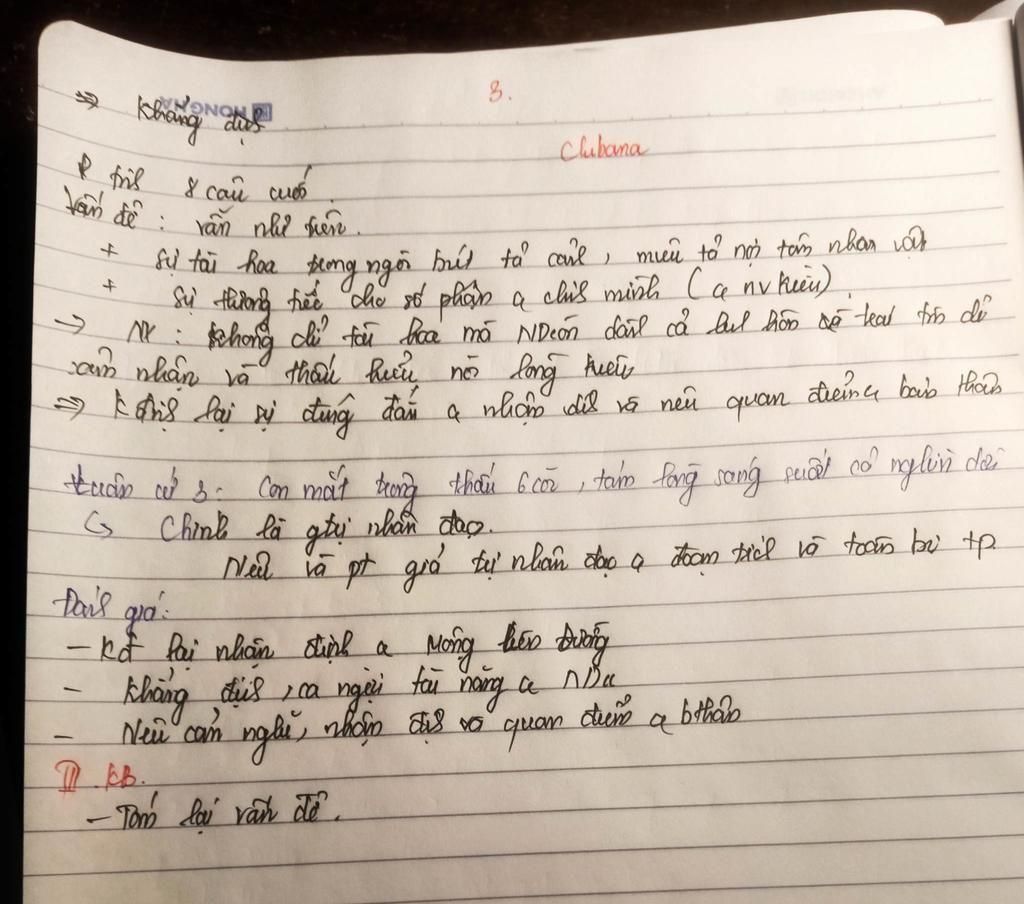 3.
HONGHA
⇒ Khẳng định
Clubana
P tích 8 câu cuối.
Vấn đề : vẫn như trên.
+ Sự tài hoa trong ngòi bút tả cảnh, miêu tả nội tâm nhân vật
+ Sự thương tiếc cho số phận a chính mình (a nv Kiều)
→ NX : không chỉ tài hoa mà NDcòn dành cả để
cảm nhận và thấu hiểu nỗi lòng Kiều
⇒ K định lại sự đúng đắn a nhận định và nêu quan điểm a bản thân
Luận cứ 3. Con mắt trông thấu 6 cõi, tấm lòng sáng suốt cả nghìn đời
↳ Chính là gtrị nhân đạo.
Nêu và pt giá trị nhân đạo a đoạn trích và toàn bộ tp
Đánh giá:
– Kđ lại nhận định a Mộng Liên Đường
– Khẳng định, ca ngợi tài năng a NDu
– Nêu cảm nghĩ, nhận định và quan điểm a bthân
III. KB.
– Tóm lại vấn đề.